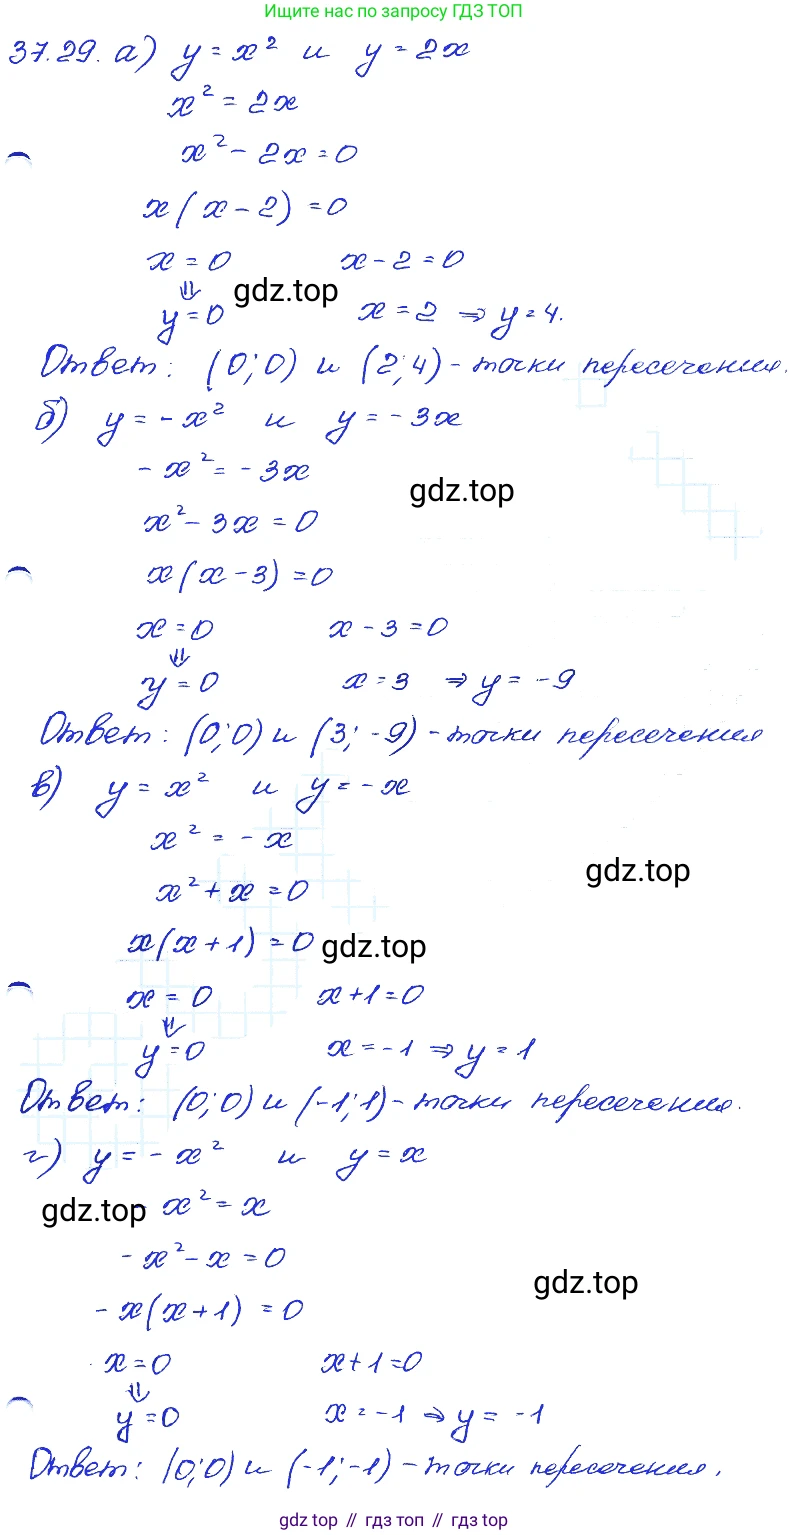 Ищите нас по запросу ГДЗ ТОП
37.29. а) y = x² и y = 2x
x² = 2x
x² - 2x = 0
x(x - 2) = 0
x = 0 x - 2 = 0
⇓ gdz.top
y = 0 x = 2 ⇒ y = 4.
Ответ: (0;0) и (2;4) - точки пересечения.
б) y = - x² и y = - 3x
- x² = - 3x
gdz.top
x² - 3x = 0
x(x - 3) = 0
x = 0 x - 3 = 0
⇓
y = 0 x = 3 ⇒ y = - 9
Ответ: (0;0) и (3; -9) - точки пересечения
в) y = x² и y = - x
x² = - x
gdz.top
x² + x = 0
x(x + 1) = 0 gdz.top
x = 0 x + 1 = 0
⇓
y = 0 x = - 1 ⇒ y = 1
Ответ: (0;0) и (-1;1) - точки пересечения.
г) y = - x² и y = x
gdz.top x² = x
- x² - x = 0
gdz.top
- x(x + 1) = 0
x = 0 x + 1 = 0
⇓
y = 0 x = - 1 ⇒ y = - 1
Ответ: (0;0) и (-1;-1) - точки пересечения.
gdz top // гдз топ // gdz top